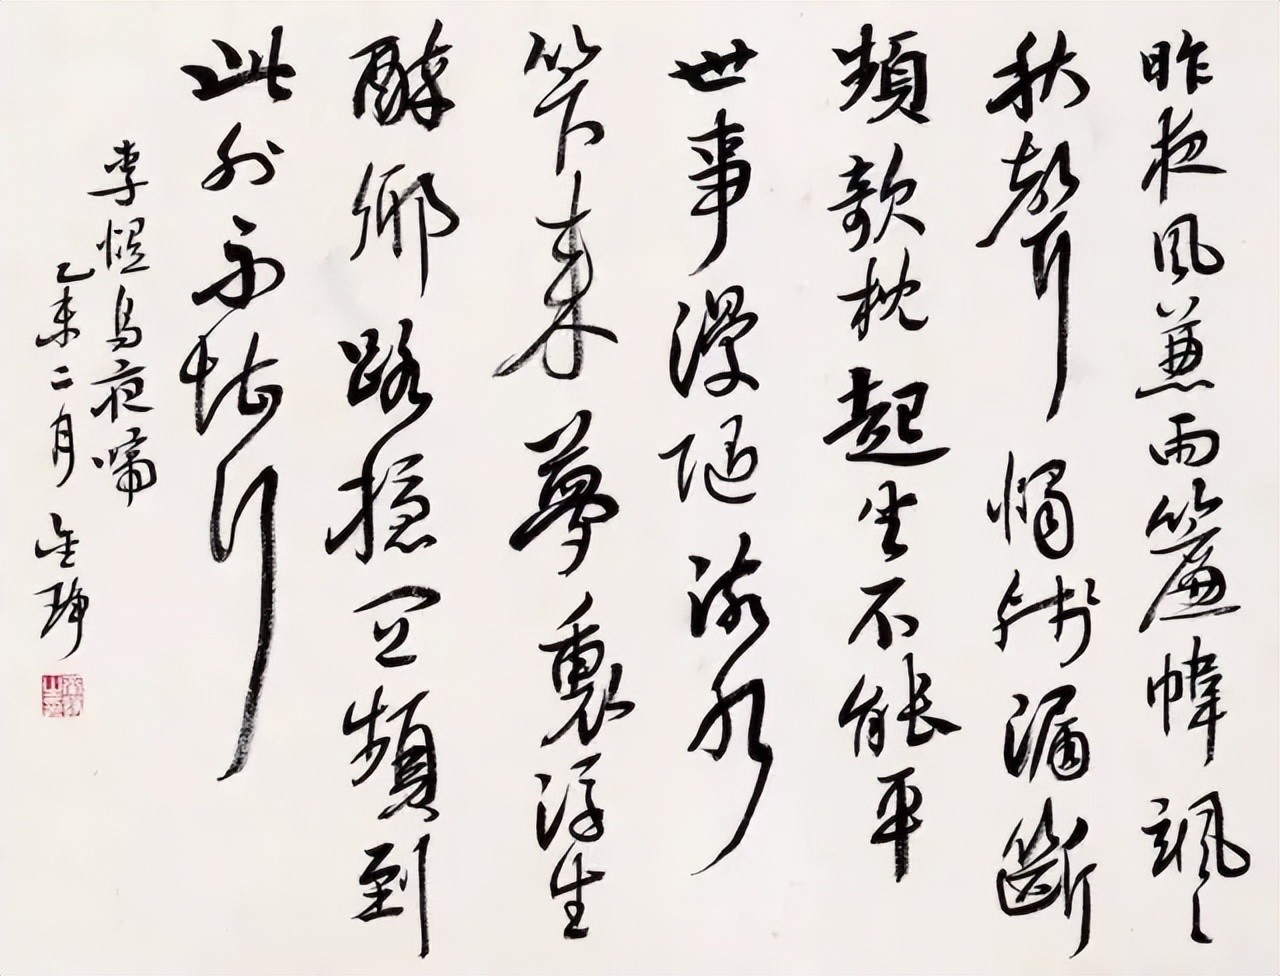 昨夜風兼雨簾幃颯〻
秋聲燭殘漏斷
頻欹枕起坐不能平
世事漫隨流水
笇来夢裏浮生
醉鄉路穩宜頻到
此外不堪行
李煜烏夜啼
乙未二月 金琤